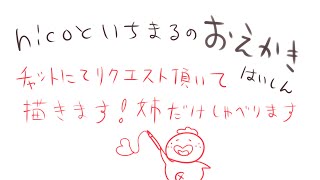 nicoといちまるのおえかき
はいしん
チャットにてリクエスト頂いて
描きます!姉だけしゃべります